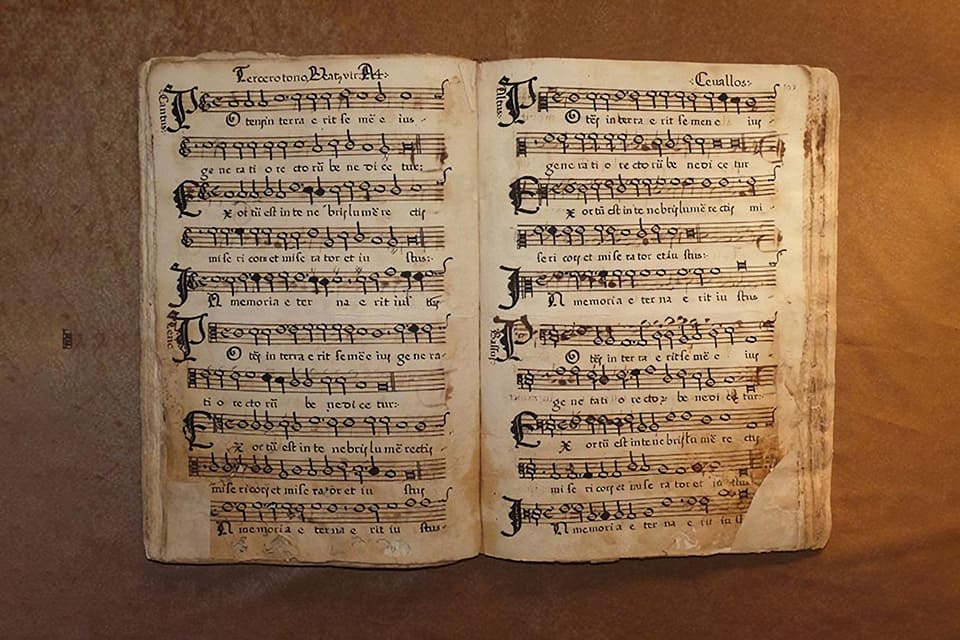 Tercero tono, Beatus vir A 4:
Cantus:
O tens in terra e rit se mē e ius -
ge ne ra ti o re cto rū be ne di ce tur:
E x or tū est in te ne bris lu mē re ctis
mi se ri cors et mise ra tor et iu stus:
I N memoria e ter na e rit ius tus
Tenor
O tēs in terra e rit se mē e ius ge ne ra -
ti o re cto rū be ne di ce tur:
E x or tū est in te ne bris lu mē rectis
mi se ri cors et mi se ra tor et iu stus
N me mori a e ter na e rit iu stus -
:Ceuallos:
P
O tēs in terra e rit se men e ius -
ge ne ra ti o re cto rū be ne di ce tur
E x or tū est in te ne bris lu mē re ctis mi
se ri cors et mi se ra tor et iu stus:
I N memoria e ter na e rit iu stus -
P
O tēs in ter ra e rit se mē e ius -
ge ne ra ti o re cto rū be ne di ce tur:
E x or tū est in te ne bris lu mē re ctis
mi se ri cors et mi se ra tor et iu stus
I N memori a e ter na e rit iu s